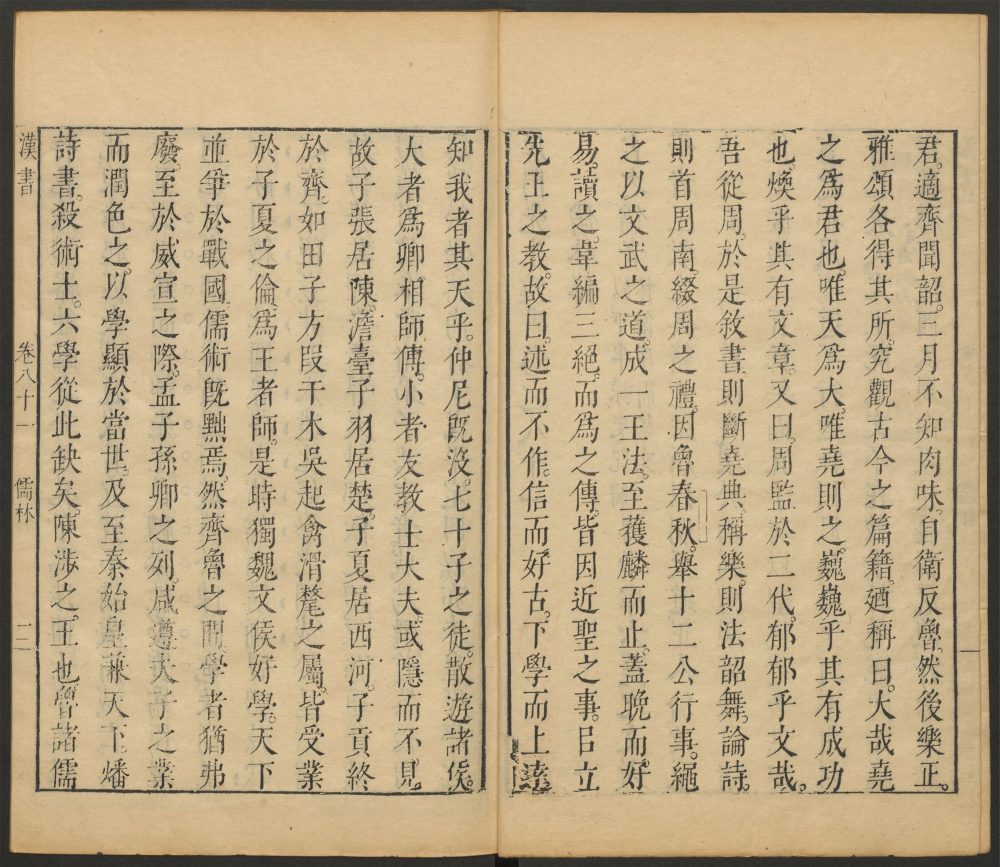 君。適齊聞韶。三月不知肉味。自衛反魯。然後樂正。
雅頌各得其所。究觀古今之篇籍。廼稱曰。大哉堯
之爲君也。唯天爲大。唯堯則之。巍巍乎其有成功
也。煥乎其有文章。又曰。周監於二代。郁郁乎文哉。
吾從周。於是敘書則斷堯典。稱樂。則法韶舞。論詩。
則首周南。綴周之禮。因魯春秋。舉十二公行事。繩
之以文武之道。成一王法。至獲麟而止。蓋晚而好
易。讀之。韋編三絕。而爲之傳。皆因近聖之事。㠯立
先王之教。故曰。述而不作。信而好古。下學而上達。
知我者其天乎。仲尼既沒。七十子之徒。散遊諸侯。
大者爲卿。相師傅。小者友教士大夫。或隱而不見。
故子張居陳。澹臺子羽居楚。子夏居西河。子貢終
於齊。如田子方段干木吳起禽滑氂之屬。皆受業
於子夏之倫。爲王者師。是時獨魏文侯好學。天下
並爭於戰國。儒術既黜焉。然齊魯之間。學者猶弗
廢。至於威宣之際。孟子孫卿之列。咸遵夫子之業
而潤色之。以學顯於當世。及至秦始皇兼天下。燔
詩書。殺術士。六學從此缺矣。陳涉之。王也魯諸儒
漢書 卷八十一 儒林 二